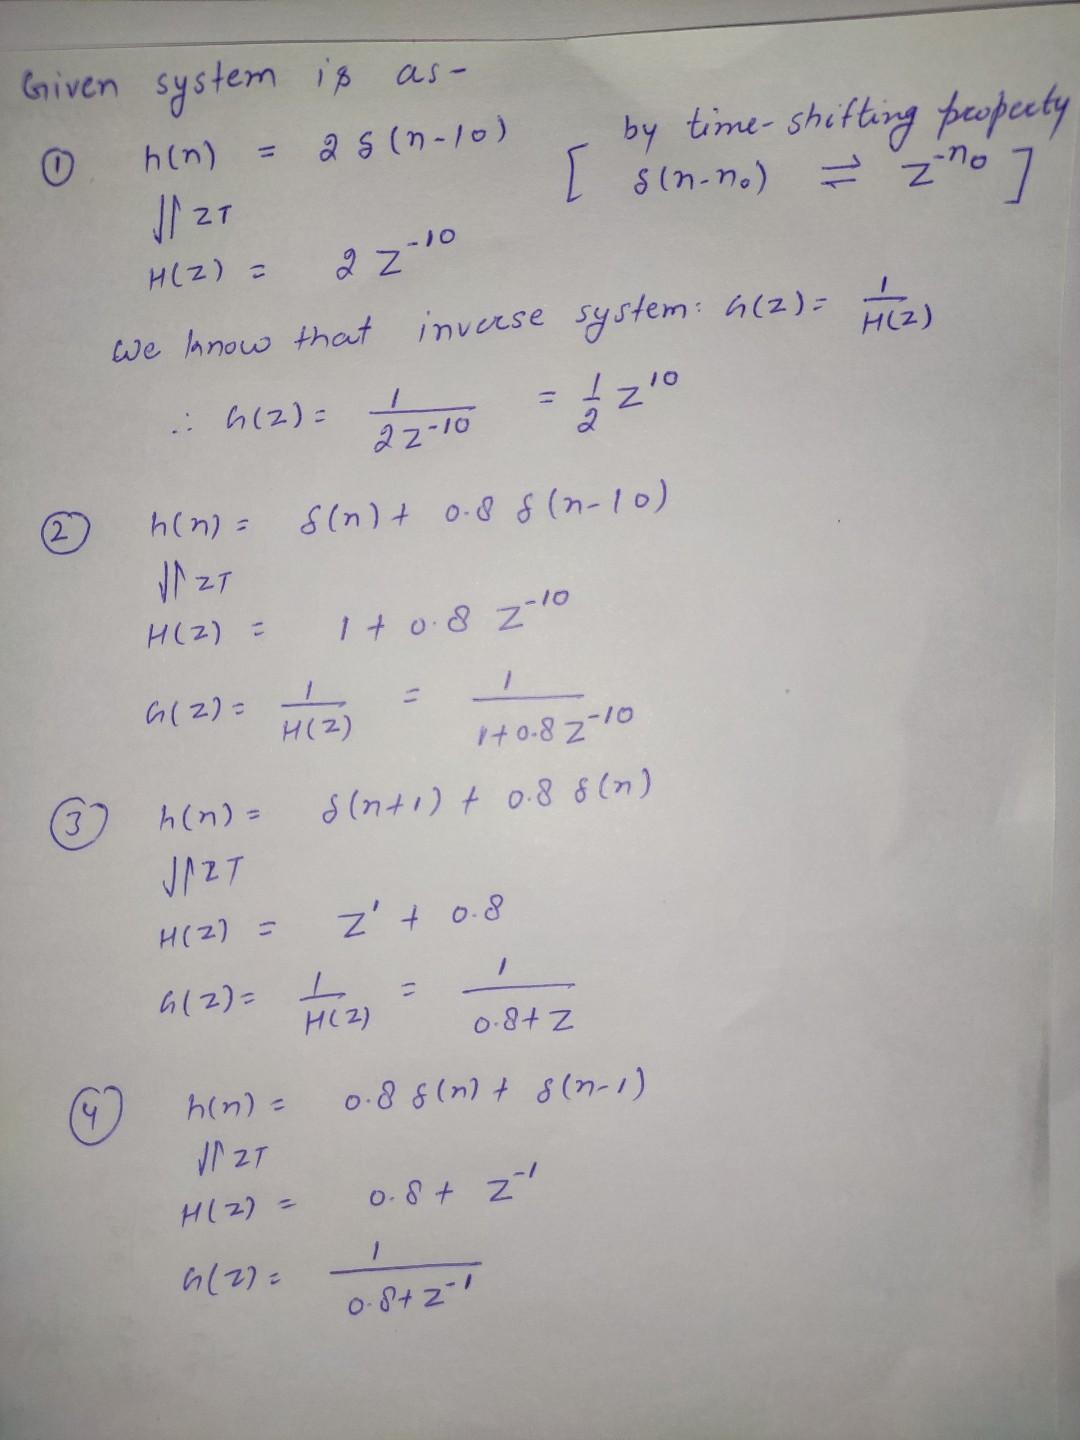 Given system is as-
① h(n) = 2 δ(n-10) [ by time-shifting property δ(n-n₀) ⇌ z⁻ⁿ⁰ ]
⇃↾ ZT
H(z) = 2 z⁻¹⁰
We know that inverse system: G(z) = 1/H(z)
∴ G(z) = 1/(2z⁻¹⁰) = 1/2 z¹⁰
② h(n) = δ(n) + 0.8 δ(n-10)
⇃↾ ZT
H(z) = 1 + 0.8 z⁻¹⁰
G(z) = 1/H(z) = 1/(1+0.8 z⁻¹⁰)
③ h(n) = δ(n+1) + 0.8 δ(n)
⇃↾ ZT
H(z) = z¹ + 0.8
G(z) = 1/H(z) = 1/(0.8+z)
④ h(n) = 0.8 δ(n) + δ(n-1)
⇃↾ ZT
H(z) = 0.8 + z⁻¹
G(z) = 1/(0.8+z⁻¹)